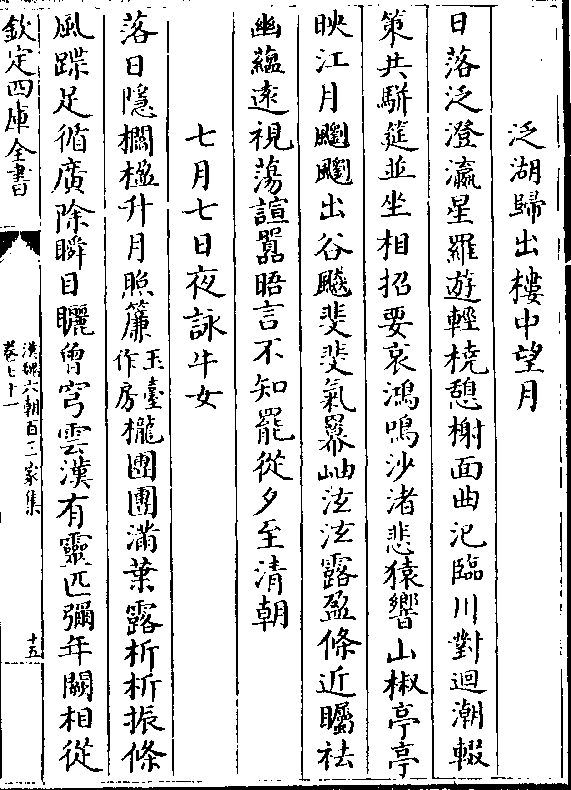 泛湖歸出樓中望月
日落泛澄瀛星羅遊輕橈憩榭面曲汜臨川對迴潮輟
策共駢筵並坐相招要哀鴻鳴沙渚悲猿響山椒亭亭
映江月飀飀出谷飈斐斐氣羃岫泫泫露盈條近矚祛
幽蘊遠視蕩諠囂晤言不知罷從夕至清朝
七月七日夜詠牛女
落日隱櫩楹升月照簾玉臺作房櫳團團滿葉露析析振條
風蹀足循廣除瞬目矖曾穹雲漢有靈匹彌年闕相從
欽定四庫全書
漢魏六朝百三家集
卷七十一
十五